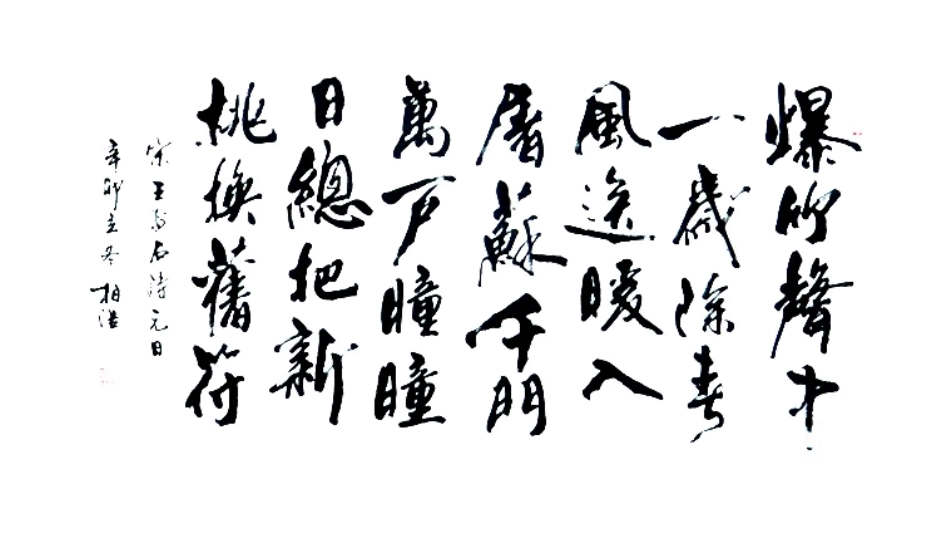 爆竹聲中
一歲除春
風送暖入
屠蘇千門
萬戶曈曈
日總把新
桃換舊符
宋王安石詩元日
辛卯立冬柏